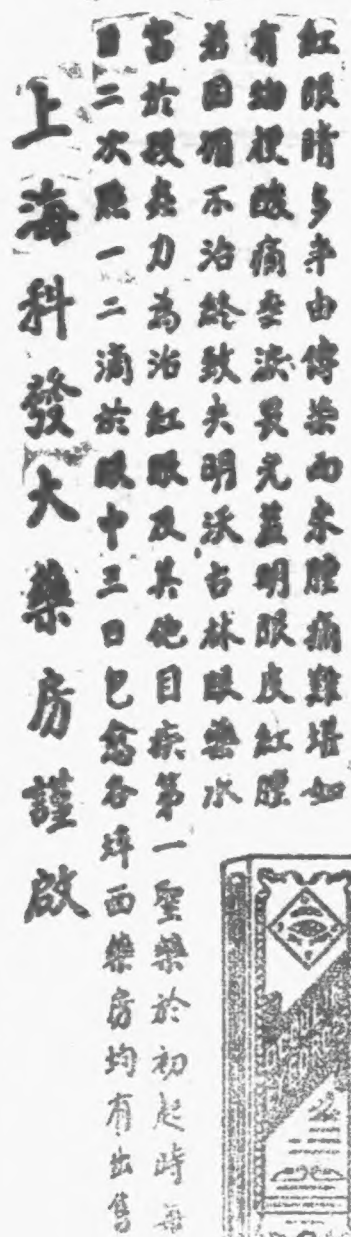 紅眼睛多半由傳染而來腫痛難堪如
有物梗酸痛羞淚畏光薑明眼皮紅腫
若因循不治終致失明沃古林眼藥水
富於殺菌力為治紅眼及其他目疾第一聖藥於初起時每
日二次點一二滴於眼中三日包愈各埠西藥房均有出售
上海科發大藥房謹啟